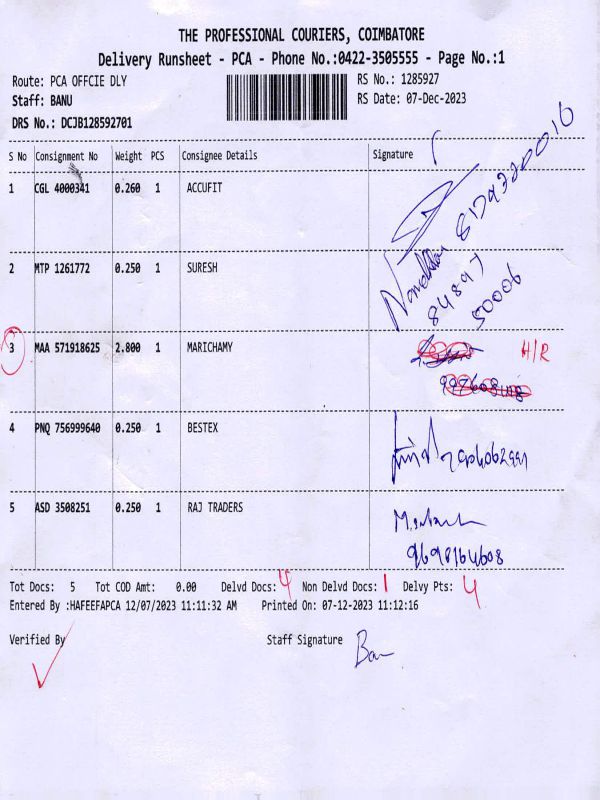 THE PROFESSIONAL COURIERS, COIMBATORE
Delivery Runsheet - PCA - Phone No.:0422-3505555 - Page No.:1
Route: PCA OFFCIE DLY RS No.: 1285927
Staff: BANU RS Date: 07-Dec-2023
DRS No.: DCJB128592701
S No Consignment No Weight PCS Consignee Details Signature
1 CGL 4000341 0.260 1 ACCUFIT
2 MTP 1261772 0.250 1 SURESH
84897
50006
3 MAA 571918625 2.800 1 MARICHAMY H/R
4 PNQ 756999640 0.250 1 BESTEX
5 ASD 3508251 0.250 1 RAJ TRADERS
9698164608
Tot Docs: 5 Tot COD Amt: 0.00 Delvd Docs: 4 Non Delvd Docs: 1 Delvy Pts: 4
Entered By :HAFEEFAPCA 12/07/2023 11:11:32 AM Printed On: 07-12-2023 11:12:16
Verified By Staff Signature